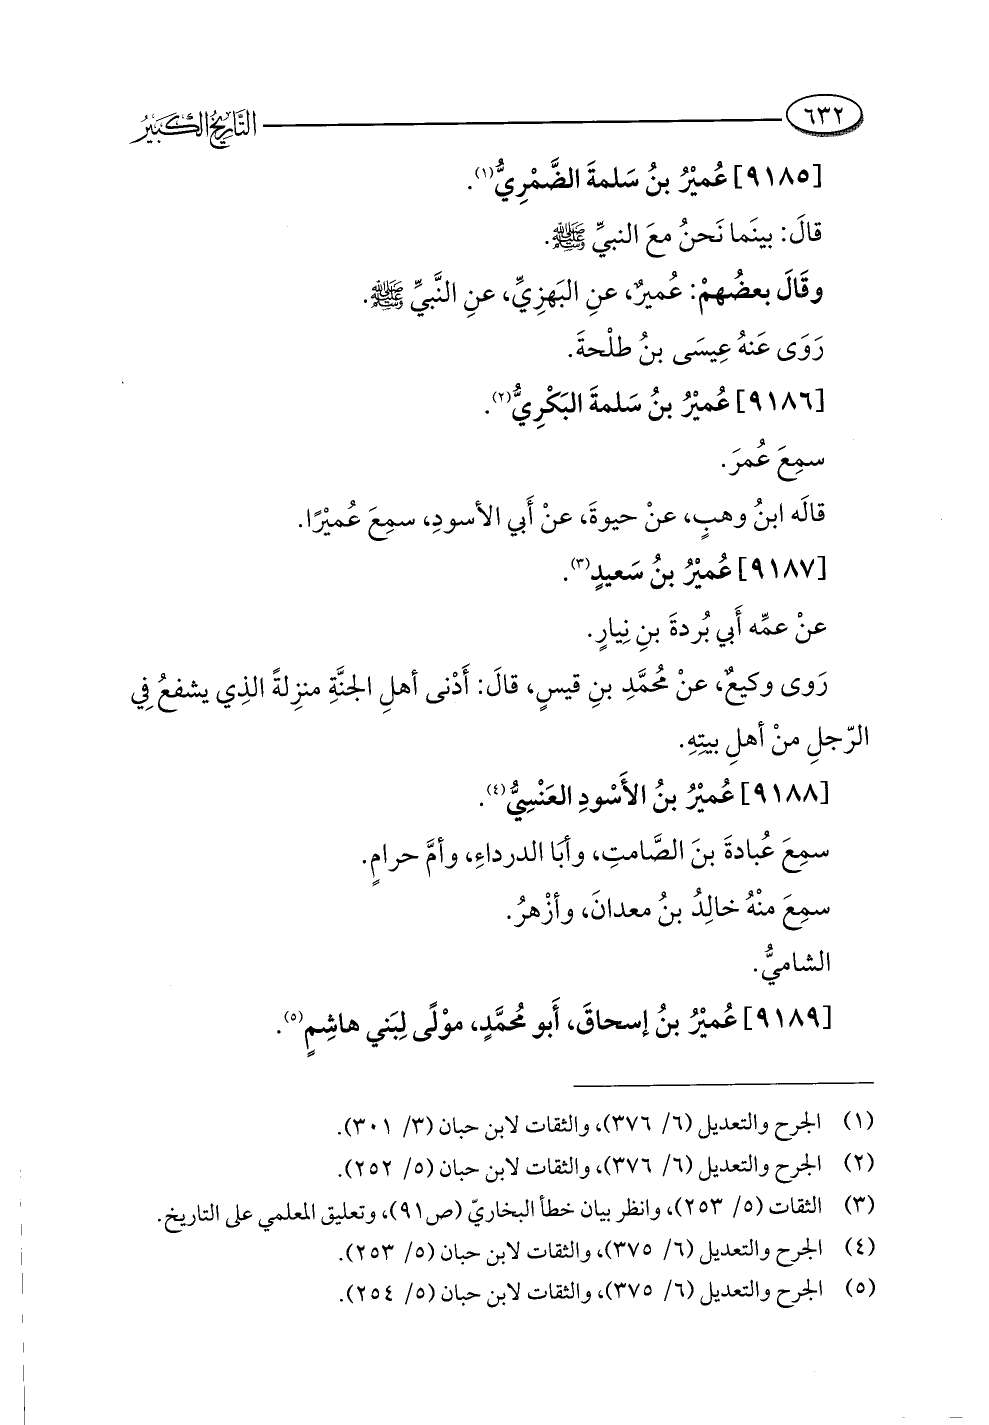 ٦٣٢ التَّارِيخُ الكَبِيرُ
[٩١٨٥] عُميْرُ بنُ سَلمةَ الضَّمْرِيُّ(١).
قالَ: بينَما نَحنُ معَ النبيِّ ﷺ.
وقَالَ بعضُهمْ: عُميرٌ، عنِ البَهزِيِّ، عنِ النَّبيِّ ﷺ.
رَوَى عَنهُ عِيسَى بنُ طلْحةَ.
[٩١٨٦] عُميْرُ بنُ سَلمةَ البَكْرِيُّ(٢).
سمِعَ عُمرَ.
قالَه ابنُ وهبٍ، عنْ حيوةَ، عنْ أَبي الأسودِ، سمِعَ عُميْرًا.
[٩١٨٧] عُميْرُ بنُ سَعيدٍ(٣).
عنْ عمِّه أَبي بُردةَ بنِ نِيارٍ.
رَوى وكيعٌ، عنْ مُحمَّدِ بنِ قيسٍ، قالَ: أَدْنى أهلِ الجنَّةِ منزِلةً الذِي يشفعُ فِي
الرّجلِ منْ أهلِ بيتِهِ.
[٩١٨٨] عُميْرُ بنُ الأَسْودِ العَنْسِيُّ(٤).
سمِعَ عُبادةَ بنَ الصَّامتِ، وأبَا الدرداءِ، وأمَّ حرامٍ.
سمِعَ منْهُ خالِدُ بنُ معدانَ، وأزْهرُ.
الشاميُّ.
[٩١٨٩] عُميْرُ بنُ إسحاقَ، أَبو مُحمَّدٍ، مولًى لِبَني هاشِمٍ(٥).
(١) الجرح والتعديل (٦/ ٣٧٦)، والثقات لابن حبان (٣/ ٣٠١).
(٢) الجرح والتعديل (٦/ ٣٧٦)، والثقات لابن حبان (٥/ ٢٥٢).
(٣) الثقات (٥/ ٢٥٣)، وانظر بيان خطأ البخاريّ (ص٩١)، وتعليق المعلمي على التاريخ.
(٤) الجرح والتعديل (٦/ ٣٧٥)، والثقات لابن حبان (٥/ ٢٥٣).
(٥) الجرح والتعديل (٦/ ٣٧٥)، والثقات لابن حبان (٥/ ٢٥٤).